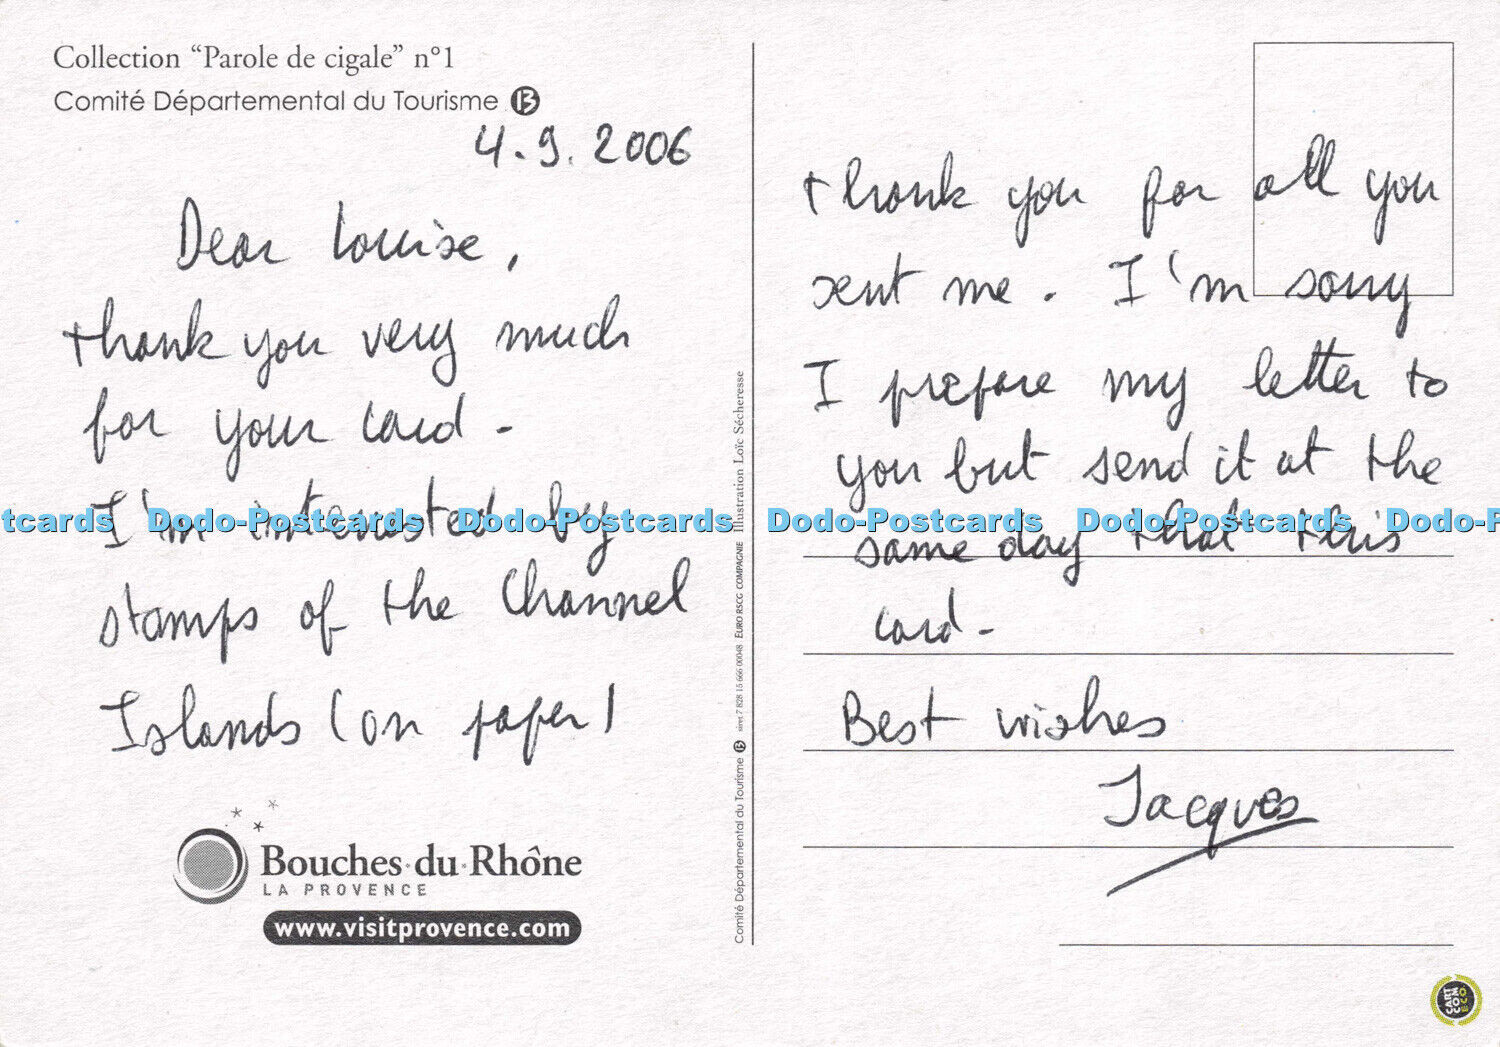 Collection “Parole de cigale” n°1
Comité Départemental du Tourisme 13
4.9.2006
Dear Louise,
thank you very much
for your card -
I'm interested by
stamps of the Channel
Islands (on paper)
Bouches·du·Rhône
LA PROVENCE
www.visitprovence.com
Comité Départemental du Tourisme 13 siret 7 828 15 666 00048 EURO RSCG COMPAGNIE Illustration Loïc Sécheresse
thank you for all you
sent me. I'm sorry
I prepare my letter to
you but send it at the
same day that this
card -
Best wishes
Jacques
tcards Dodo-Postcards Dodo-Postcards Dodo-Postcards Dodo-Postcards Dodo-P
CART
COM
ECO